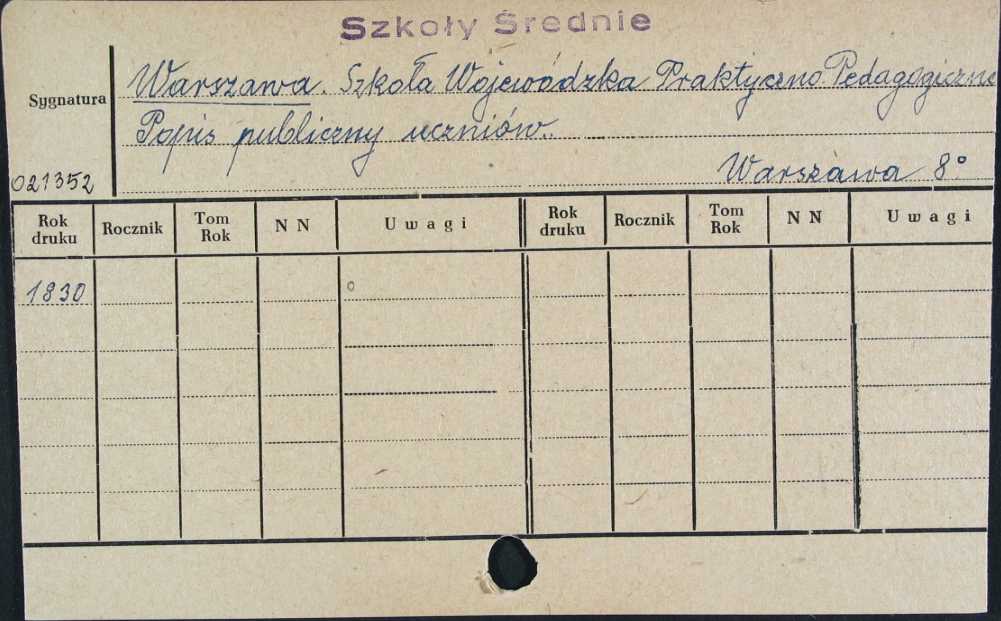 Szkoły Średnie
Warszawa. Szkoła Wojewódzka Praktyczno Pedagogiczna
Sygnatura
Popis publiczny uczniów.
021352
Warszawa 8°
Rok druku Rocznik Tom Rok N N Uwagi Rok druku Rocznik Tom Rok N N Uwagi
1830